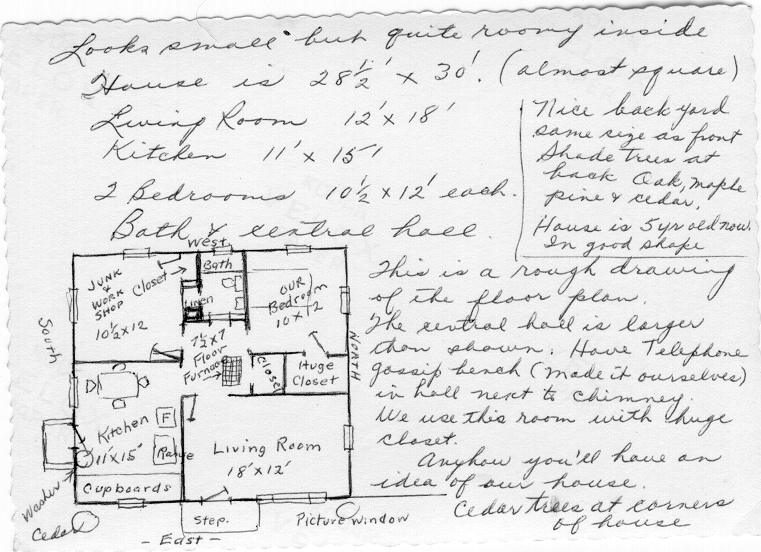 Looks small but quite roomy inside
House is 28½' x 30'. (almost square)
Living Room 12' x 18'
Kitchen 11' x 15'
2 Bedrooms 10½ x 12' each.
Bath & central hall.
Nice back yard
same size as front
Shade trees at
back Oak, maple
pine & cedar.
House is 5 yr old now.
In good shape
This is a rough drawing
of the floor plan.
The central hall is larger
than shown. Have Telephone
gossip bench (made it ourselves)
in hall next to chimney.
We use this room with huge
closet.
Anyhow you'll have an
idea of our house.
Cedar trees at corners
of house
West
JUNK
&
WORK
SHOP
10½ x 12
Closet
Bath
Linen
OUR
Bedroom
10 x 12
South
NORTH
7½ x 7
Floor
Furnace
Closet
Huge
Closet
Kitchen
11' x 15'
F
Range
Cupboards
Living Room
18' x 12'
Washer
Cedar
Step.
Picture window
- East -